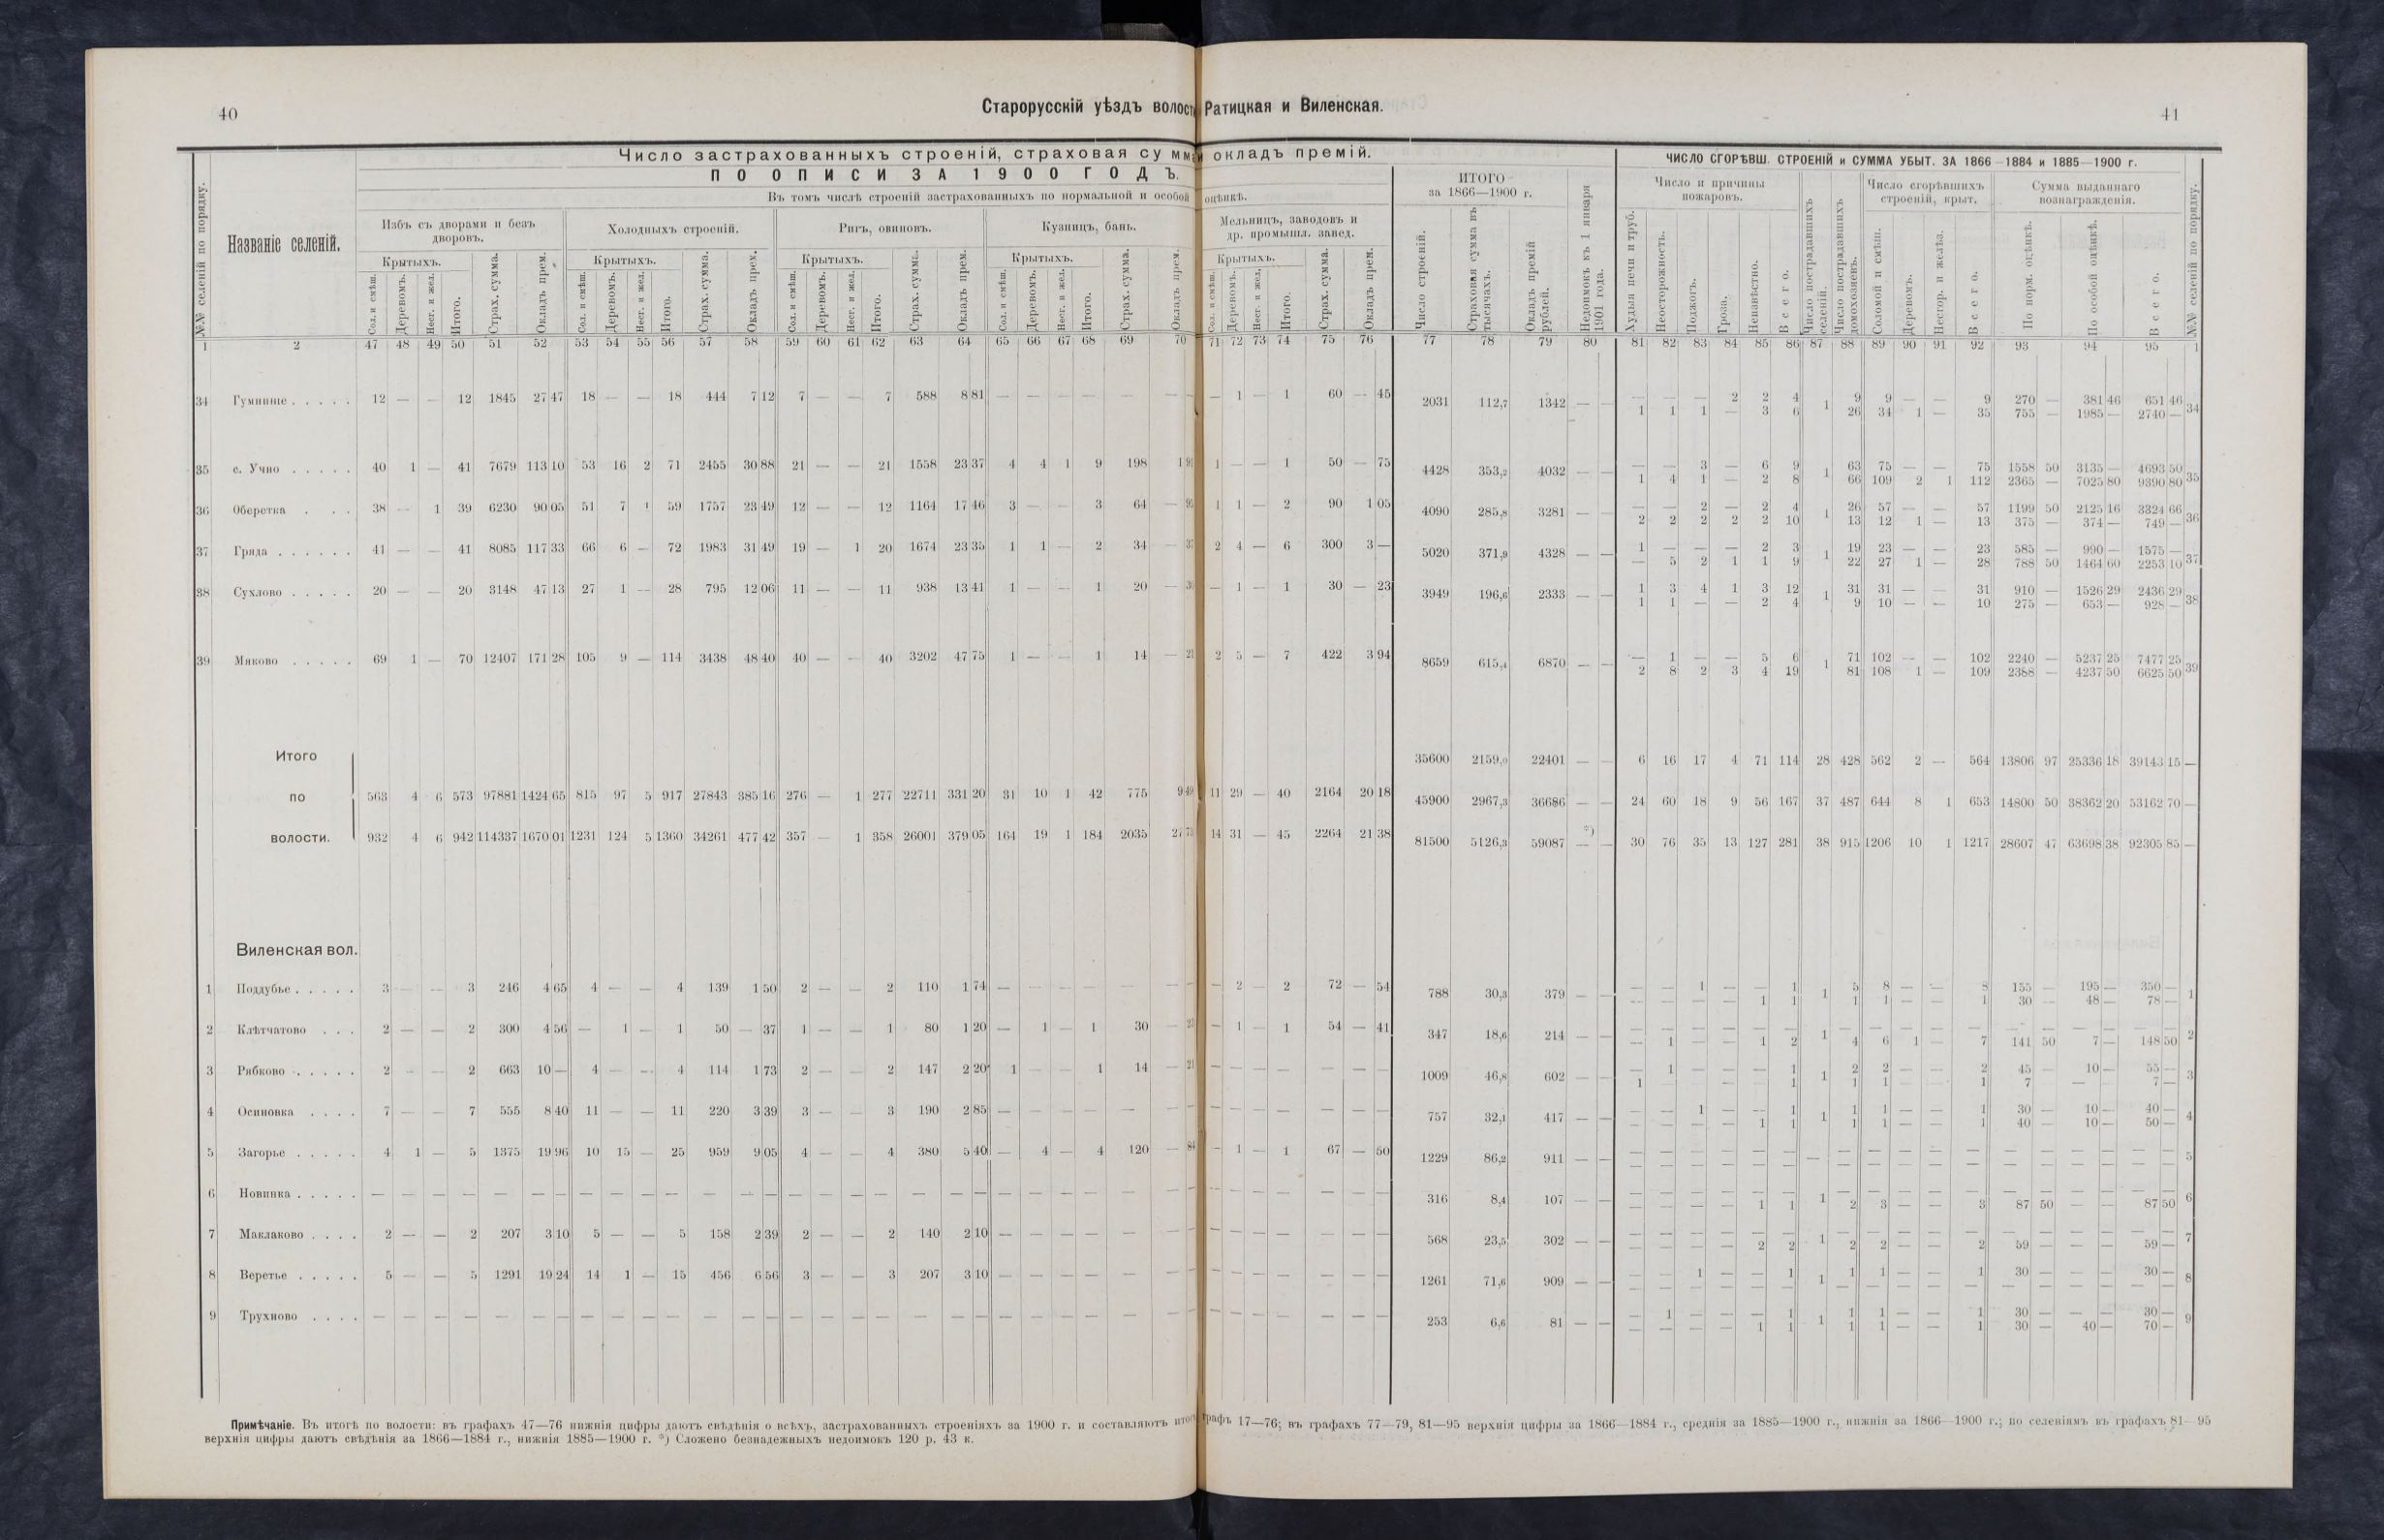 40
Старорусскій уѣздъ волост Ратицкая и Виленская.
41
Число застрахованныхъ строеній, страховая сумма и окладъ премій.
ПО ОПИСИ ЗА 1900 ГОДЪ.
Въ томъ числѣ строеній застрахованныхъ по нормальной и особой оцѣнкѣ.
ИТОГО за 1866—1900 г.
ЧИСЛО СГОРѢВШ. СТРОЕНІЙ и СУММА УБЫТ. ЗА 1866—1884 и 1885—1900 г.
№№ селеній по порядку.
Названіе селеній.
Избъ съ дворами и безъ дворовъ.
Холодныхъ строеній.
Ригъ, овиновъ.
Кузницъ, бань.
Мельницъ, заводовъ и др. промышл. завед.
Число и причины пожаровъ.
Число сгорѣвшихъ строеній, крыт.
Сумма выданнаго вознагражденія.
Крытыхъ. Крытыхъ. Крытыхъ. Крытыхъ. Крытыхъ.
Сол. и смѣш. Деревомъ. Несг. и жел. Итого. Страх. сумма. Окладъ прем.
Число строеній. Страховая сумма въ тысячахъ. Окладъ премій рублей. Недоимокъ къ 1 января 1901 года.
Худыя печи и труб. Неосторожность. Поджогъ. Гроза. Неизвѣстно. Всего. Число пострадавшихъ селеній. Число пострадавшихъ домохозяевъ. Соломой и смѣш. Деревомъ. Несгор. и желѣз. Всего. По норм. оцѣнкѣ. По особой оцѣнкѣ. Всего. №№ селеній по порядку.
1 2 47 48 49 50 51 52 53 54 55 56 57 58 59 60 61 62 63 64 65 66 67 68 69 70 71 72 73 74 75 76 77 78 79 80 81 82 83 84 85 86 87 88 89 90 91 92 93 94 95 1
34 Гумнище . . . . . 12 — — 12 1845 27 47 18 — — 18 444 7 12 7 — — 7 588 8 81 — — — — — — — 1 — 1 60 — 45 2031 112,7 1342 — — — — — 2 2 4 1 9 9 — — 9 270 — 381 46 651 46 34
1 1 1 — 3 6 26 34 1 — 35 755 — 1985 — 2740 —
35 с. Учно . . . . . 40 1 — 41 7679 113 10 53 16 2 71 2455 30 88 21 — — 21 1558 23 37 4 4 1 9 198 1 1 — — 1 50 — 75 4428 353,2 4032 — — — — 3 — 6 9 1 63 75 — — 75 1558 50 3135 — 4693 50 35
1 4 1 — 2 8 66 109 2 1 112 2365 — 7025 80 9390 80
36 Оберетка . . . 38 — 1 39 6230 90 05 51 7 1 59 1757 23 49 12 — — 12 1164 17 46 3 — — 3 64 — 1 1 — 2 90 1 05 4090 285,8 3281 — — — — 2 — 2 4 1 26 57 — — 57 1199 50 2125 16 3324 66 36
2 2 2 2 2 10 13 12 1 — 13 375 — 374 — 749 —
37 Гряда . . . . . . 41 — — 41 8085 117 33 66 6 — 72 1983 31 49 19 — 1 20 1674 23 35 1 1 — 2 34 — 2 4 — 6 300 3 — 5020 371,9 4328 — — 1 — — — 2 3 1 19 23 — — 23 585 — 990 — 1575 — 37
— 5 2 1 1 9 22 27 1 — 28 788 50 1464 60 2253 10
38 Сухлово . . . . . 20 — — 20 3148 47 13 27 1 — 28 795 12 06 11 — — 11 938 13 41 1 — — 1 20 — — 1 — 1 30 — 23 3949 196,6 2333 — — 1 3 4 1 3 12 1 31 31 — — 31 910 — 1526 29 2436 29 38
1 1 — — 2 4 9 10 — — 10 275 — 653 — 928 —
39 Мяково . . . . . 69 1 — 70 12407 171 28 105 9 — 114 3438 48 40 40 — — 40 3202 47 75 1 — — 1 14 — 21 2 5 — 7 422 3 94 8659 615,4 6870 — — — 1 — — 5 6 1 71 102 — — 102 2240 — 5237 25 7477 25 39
2 8 2 3 4 19 81 108 1 — 109 2388 — 4237 50 6625 50
Итого 35600 2159,0 22401 — — 6 16 17 4 71 114 28 428 562 2 — 564 13806 97 25336 18 39143 15 —
по 563 4 6 573 97881 1424 65 815 97 5 917 27843 385 16 276 — 1 277 22711 331 20 31 10 1 42 775 9 49 11 29 — 40 2164 20 18 45900 2967,3 36686 — — 24 60 18 9 56 167 37 487 644 8 1 653 14800 50 38362 20 53162 70 —
волости. 932 4 6 942 114337 1670 01 1231 124 5 1360 34261 477 42 357 — 1 358 26001 379 05 164 19 1 184 2035 27 75 14 31 — 45 2264 21 38 81500 5126,3 59087 *) — — 30 76 35 13 127 281 38 915 1206 10 1 1217 28607 47 63698 38 92305 85 —
Виленская вол.
1 Поддубье . . . . . 3 — — 3 246 4 65 4 — — 4 139 1 50 2 — — 2 110 1 74 — — — — — — — 2 — 2 72 — 54 788 30,3 379 — — — — 1 — — 1 1 5 8 — — 8 155 — 195 — 350 — 1
— — — — 1 1 1 1 — — 1 30 — 48 — 78 —
2 Клѣтчатово . . . 2 — — 2 300 4 56 — 1 — 1 50 — 37 1 — — 1 80 1 20 — 1 — 1 30 — — 1 — 1 54 — 41 347 18,6 214 — — — — — — — — 1 — — — — — — — — — — — 2
— 1 — — 1 2 4 6 1 — 7 141 50 7 — 148 50
3 Рябково . . . . . 2 — — 2 663 10 — 4 — — 4 114 1 73 2 — — 2 147 2 20 1 — — 1 14 — 21 — — — — — — 1009 46,8 602 — — — 1 — — — 1 1 2 2 — — 2 45 — 10 — 55 — 3
1 — — — 1 1 1 — — 1 7 — — — 7 —
4 Осиновка . . . . 7 — — 7 555 8 40 11 — — 11 220 3 39 3 — — 3 190 2 85 — — — — — — — — — — — — 757 32,1 417 — — — — 1 — — 1 1 1 1 — — 1 30 — 10 — 40 — 4
— — — — 1 1 1 1 — — 1 40 — 10 — 50 —
5 Загорье . . . . . 4 1 — 5 1375 19 96 10 15 — 25 959 9 05 4 — — 4 380 5 40 — 4 — 4 120 — 84 — 1 — 1 67 — 50 1229 86,2 911 — — — — — — — — — — — — — — — — — — — — 5
— — — — — — — — — — — — — — — — —
6 Новинка . . . . . — — — — — — — — — — — — — — — — — — — — — — — — — — — — — — — — — — 316 8,4 107 — — — — — — — — 1 — — — — — — — — — — — 6
— — — — 1 1 2 3 — — 3 87 50 — — 87 50
7 Маклаково . . . . 2 — — 2 207 3 10 5 — — 5 158 2 39 2 — — 2 140 2 10 — — — — — — — — — — — — 568 23,5 302 — — — — — — — — 1 — — — — — — — — — — — 7
— — — — 2 2 2 2 — — 2 59 — — — 59 —
8 Веретье . . . . . 5 — — 5 1291 19 24 14 1 — 15 456 6 56 3 — — 3 207 3 10 — — — — — — — — — — — — 1261 71,6 909 — — — — 1 — — 1 1 1 1 — — 1 30 — — — 30 — 8
— — — — — — — — — — — — — — — — —
9 Трухново . . . . — — — — — — — — — — — — — — — — — — — — — — — — — — — — — — — — — — 253 6,6 81 — — — 1 — — — 1 1 1 1 — — 1 30 — — — 30 — 9
— — — — 1 1 1 1 — — 1 30 — 40 — 70 —
Примѣчаніе. Въ итогѣ по волости: въ графахъ 47—76 нижнія цифры даютъ свѣдѣнія о всѣхъ, застрахованныхъ строеніяхъ за 1900 г. и составляютъ итогъ графъ 17—76; въ графахъ 77—79, 81—95 верхнія цифры за 1866—1884 г., среднія за 1885—1900 г., нижнія за 1866—1900 г.; по селеніямъ въ графахъ 81—95
верхнія цифры даютъ свѣдѣнія за 1866—1884 г., нижнія 1885—1900 г. *) Сложено безнадежныхъ недоимокъ 120 р. 43 к.